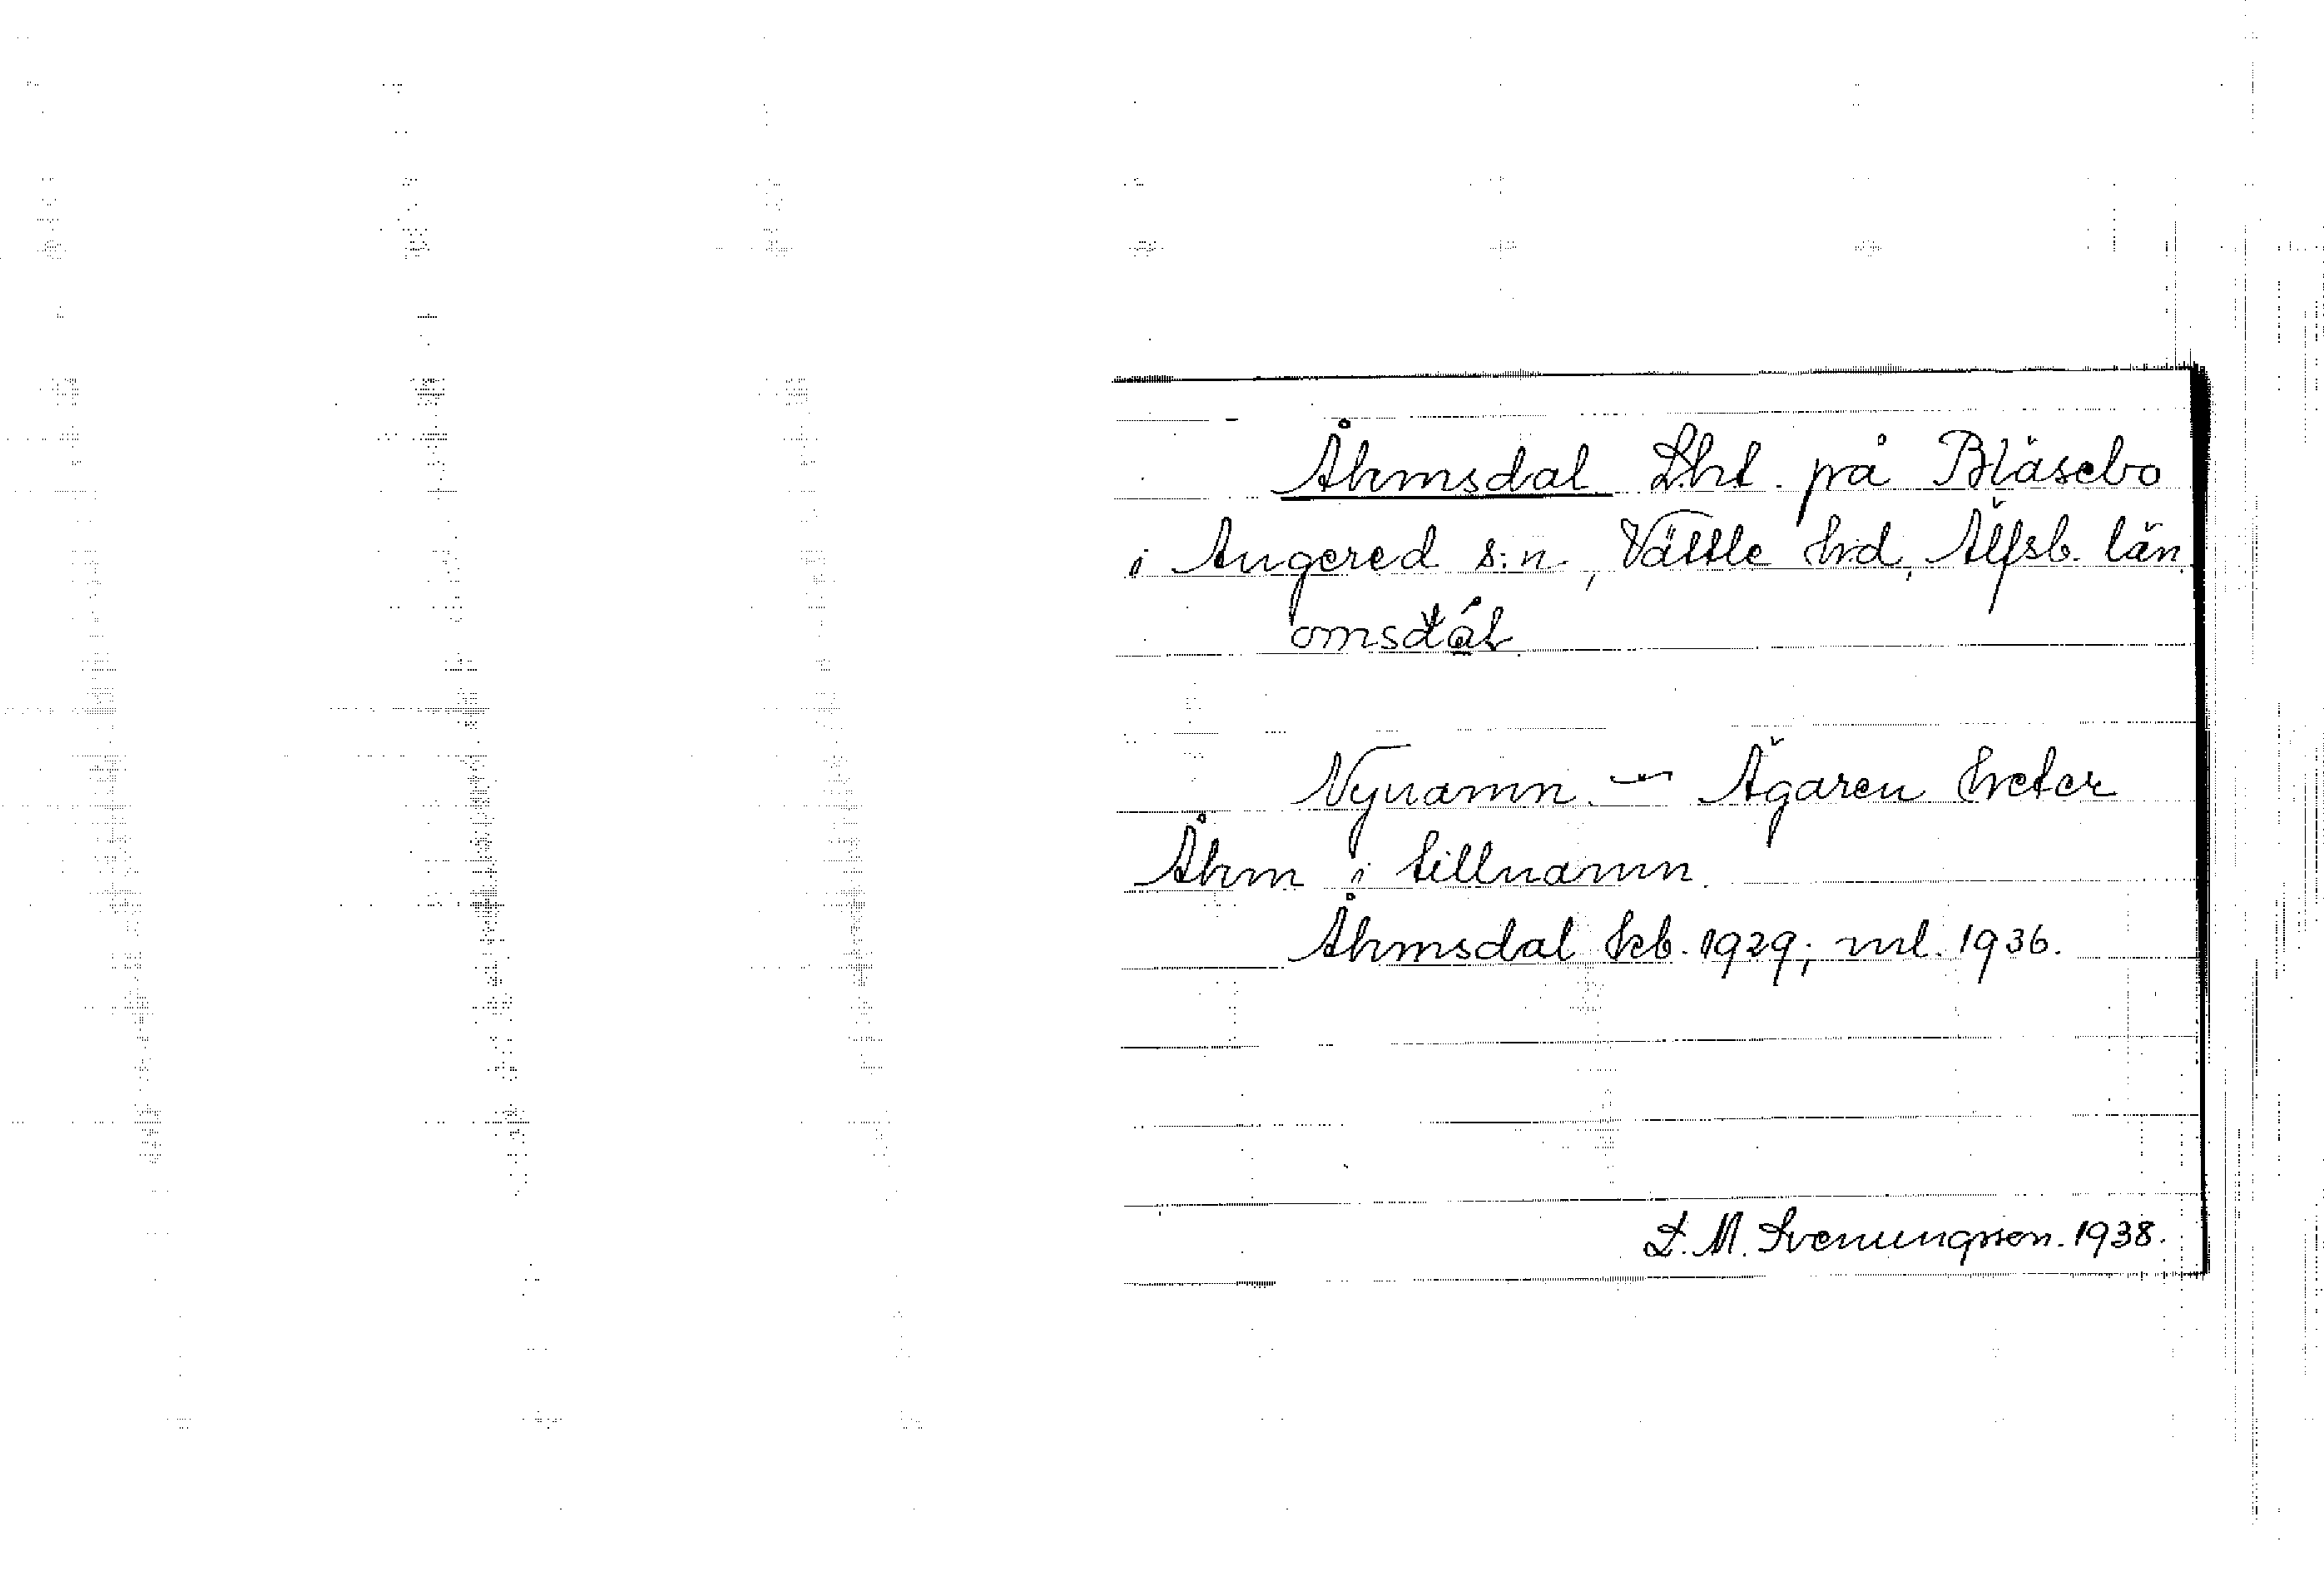 Åhmsdal Lht. på Bläsebo
i Angered s:n, Vättle hd, Älfsb. län.
omsdȧl
Nynamn. – Ägaren heter
Åhm i tillnamn.
Åhmsdal kb. 1929; ml. 1936.
L. M. Svenungsson. 1938.